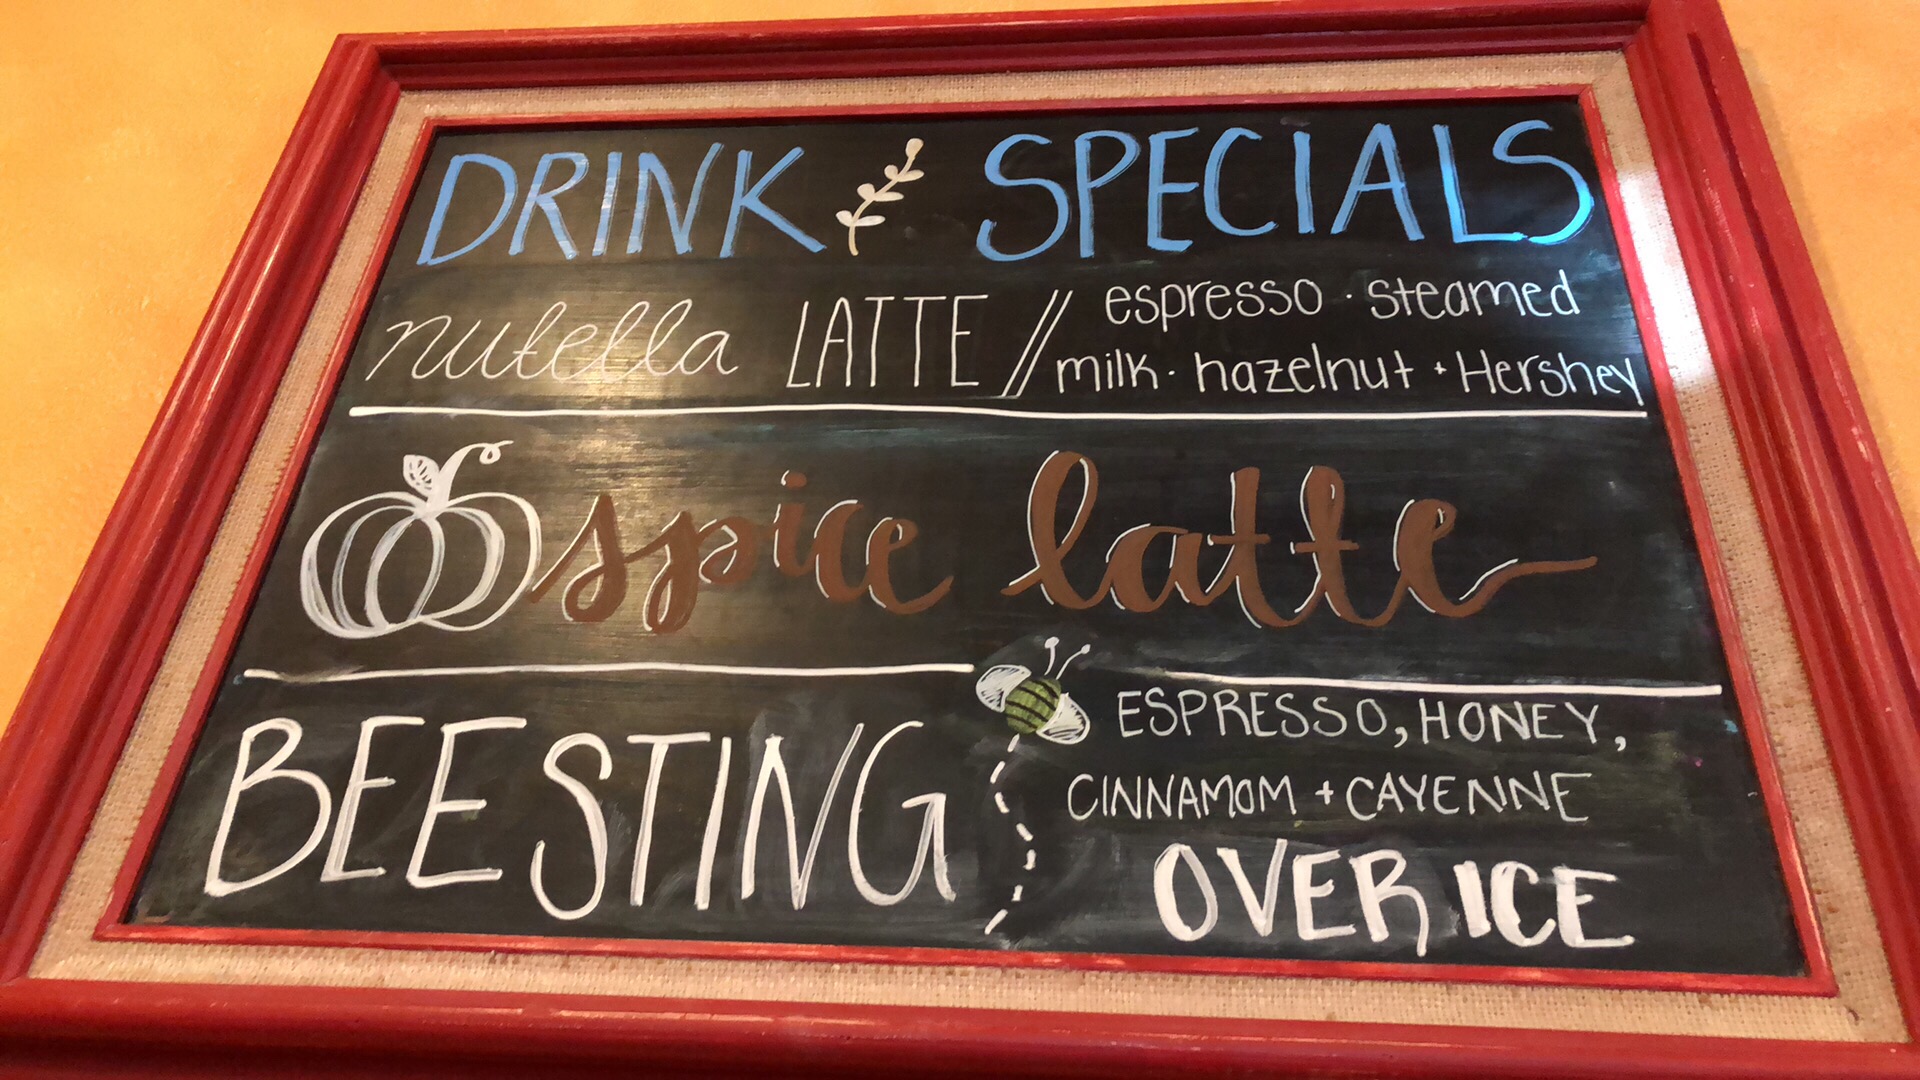 DRINK SPECIALS
nutella LATTE // espresso · steamed
milk · hazelnut + Hershey
spice latte
BEE STING
ESPRESSO, HONEY,
CINNAMOM + CAYENNE
OVER ICE